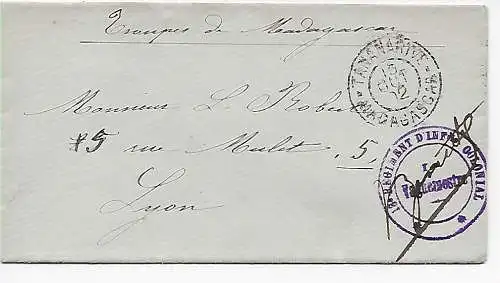 Troupes de Madagascar
TANANARIVE
MADAGASCAR
Monsieur L. Robert
5 rue Mulet, 5,
Lyon
RÉGIMENT D'INFIE COLONIALE
Le
Vaguemestre